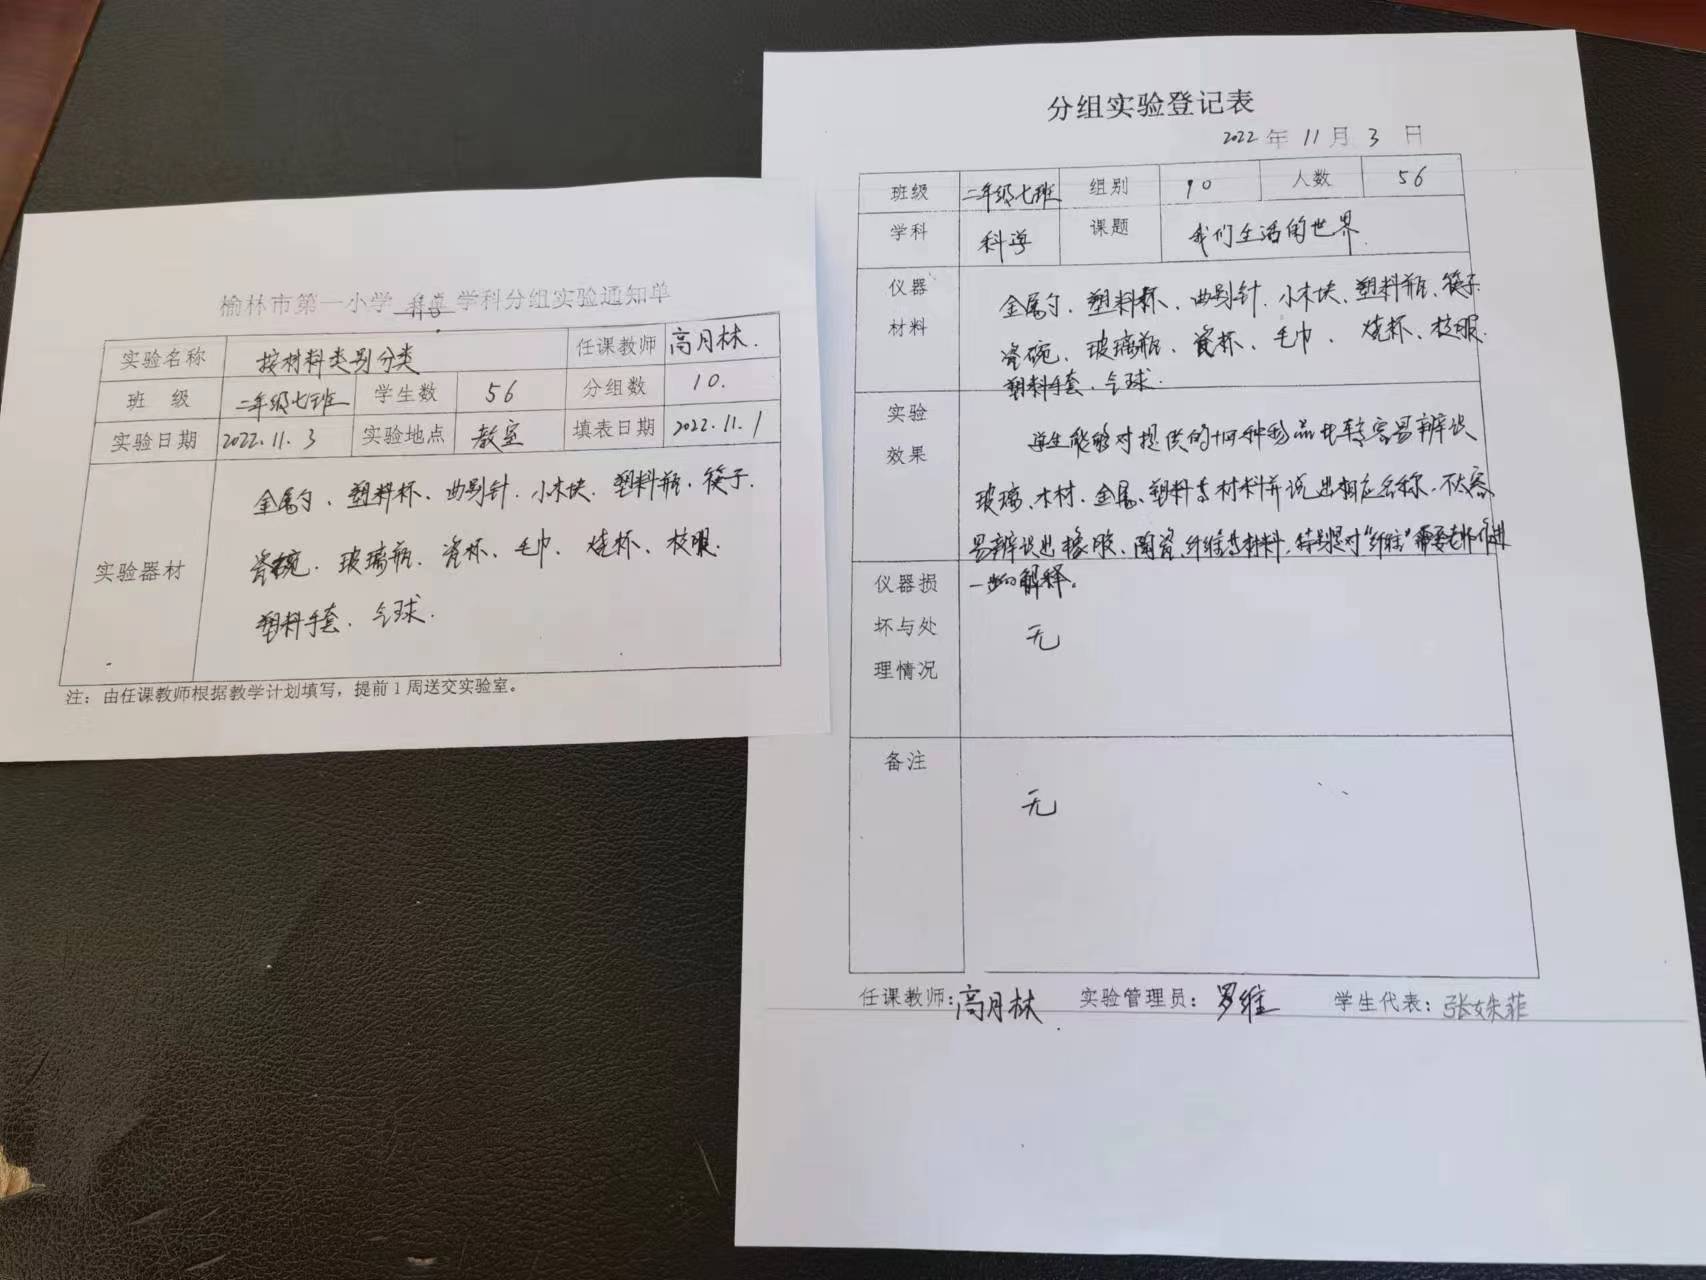 榆林市第一小学 科学 学科分组实验通知单
实验名称 按材料类别分类 任课教师 高月林.
班 级 二年级七班 学生数 56 分组数 10.
实验日期 2022.11.3 实验地点 教室 填表日期 2022.11.1
实验器材
金属勺、塑料杯、曲别针、小木块、塑料瓶、筷子.
瓷碗、玻璃瓶、瓷杯、毛巾、烧杯、校服.
塑料手套、气球.
注：由任课教师根据教学计划填写，提前1周送交实验室。
分组实验登记表
2022 年 11 月 3 日
班级 二年级七班 组别 10 人数 56
学科 科学 课题 我们生活的世界.
仪器
材料
金属勺、塑料杯、曲别针、小木块、塑料瓶、筷子.
瓷碗、玻璃瓶、瓷杯、毛巾、烧杯、校服.
塑料手套、气球.
实验
效果
学生能够对提供的十四种物品比较容易辨识
玻璃、木材、金属、塑料等材料并说出相应名称、不太容
易辨识出橡胶、陶瓷、纤维等材料，特别是对“纤维”需要老师作进
一步的解释。
仪器损
坏与处
理情况
无
备注
无
任课教师：高月林 实验管理员：罗维 学生代表：张姝菲